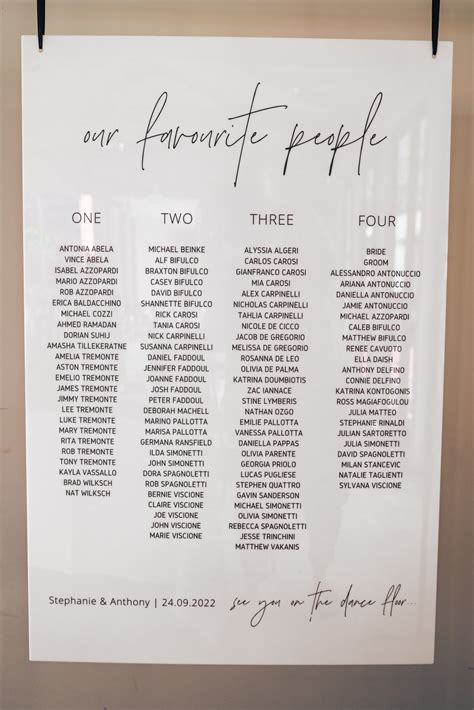 our favourite people
ONE
ANTONIA ABELA
VINCE ABELA
ISABEL AZZOPARDI
MARIO AZZOPARDI
ROB AZZOPARDI
ERICA BALDACCHINO
MICHAEL COZZI
AHMED RAMADAN
DORIAN SUHIJ
AMASHA TILLEKERATNE
AMELIA TREMONTE
ASTON TREMONTE
EMELIO TREMONTE
JAMES TREMONTE
JIMMY TREMONTE
LEE TREMONTE
LUKE TREMONTE
MARY TREMONTE
RITA TREMONTE
ROB TREMONTE
TONY TREMONTE
KAYLA VASSALLO
BRAD WILKSCH
NAT WILKSCH
TWO
MICHAEL BEINKE
ALF BIFULCO
BRAXTON BIFULCO
CASEY BIFULCO
DAVID BIFULCO
SHANNETTE BIFULCO
RICK CAROSI
TANIA CAROSI
NICK CARPINELLI
SUSANNA CARPINELLI
DANIEL FADDOUL
JENNIFER FADDOUL
JOANNE FADDOUL
JOSH FADDOUL
PETER FADDOUL
DEBORAH MACHELL
MARINO PALLOTTA
MARISA PALLOTTA
GERMANA RANSFIELD
ILDA SIMONETTI
JOHN SIMONETTI
DORA SPAGNOLETTI
ROB SPAGNOLETTI
BERNIE VISCIONE
CLAIRE VISCIONE
JOE VISCIONE
JOHN VISCIONE
MARIE VISCIONE
THREE
ALYSSIA ALGERI
CARLOS CAROSI
GIANFRANCO CAROSI
MIA CAROSI
ALEX CARPINELLI
NICHOLAS CARPINELLI
TAHLIA CARPINELLI
NICOLE DE CICCO
JACOB DE GREGORIO
MELISSA DE GREGORIO
ROSANNA DE LEO
OLIVIA DE PALMA
KATRINA DOUMBIOTIS
ZAC IANNACE
STINE LYMBERIS
NATHAN OZGO
EMILIE PALLOTTA
VANESSA PALLOTTA
DANIELLA PAPPAS
OLIVIA PARENTE
GEORGIA PRIOLO
LUCAS PUGLIESE
STEPHEN QUATTRO
GAVIN SANDERSON
MICHAEL SIMONETTI
OLIVIA SIMONETTI
REBECCA SPAGNOLETTI
JESSE TRINCHINI
MATTHEW VAKANIS
FOUR
BRIDE
GROOM
ALESSANDRO ANTONUCCIO
ARIANA ANTONUCCIO
DANIELLA ANTONUCCIO
JAMIE ANTONUCCIO
MICHAEL AZZOPARDI
CALEB BIFULCO
MATTHEW BIFULCO
RENEE CAVUOTO
ELLA DAISH
ANTHONY DELFINO
CONNIE DELFINO
KATRINA KONTOGONIS
ROSS MAGIAFOGLOU
JULIA MATTEO
STEPHANIE RINALDI
JULIAN SARTORETTO
JULIA SIMONETTI
DAVID SPAGNOLETTI
MILAN STANCEVIC
NATALIE TAGLIENTI
SYLVANA VISCIONE
Stephanie & Anthony | 24.09.2022
see you on the dance floor...